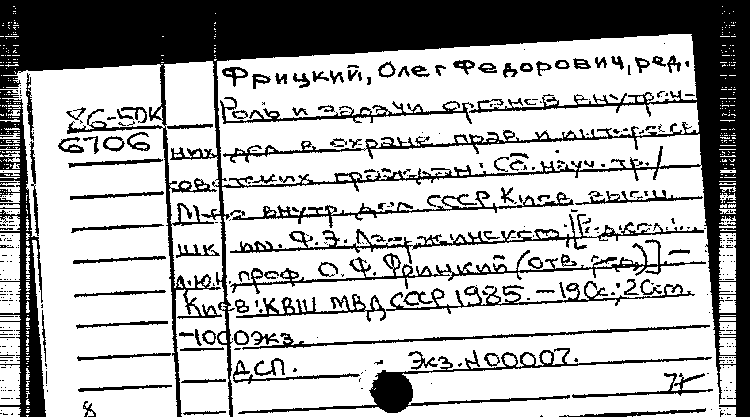 Фрицкий, Олег Федорович, ред.
86-5ДК Роль и задачи органов внутрен-
6706 них дел в охране прав и интересов
советских граждан: Сб. науч. тр. /
М-во внутр. дел СССР, Киев. высш.
шк. им. Ф. Э. Дзержинского; [Редкол.:
д.ю.н., проф. О. Ф. Фрицкий (отв. ред.)]. –
Киев: КВШ МВД СССР, 1985. – 190с.; 20см.
– 1000экз.
ДСП. - Экз. N00007.
8